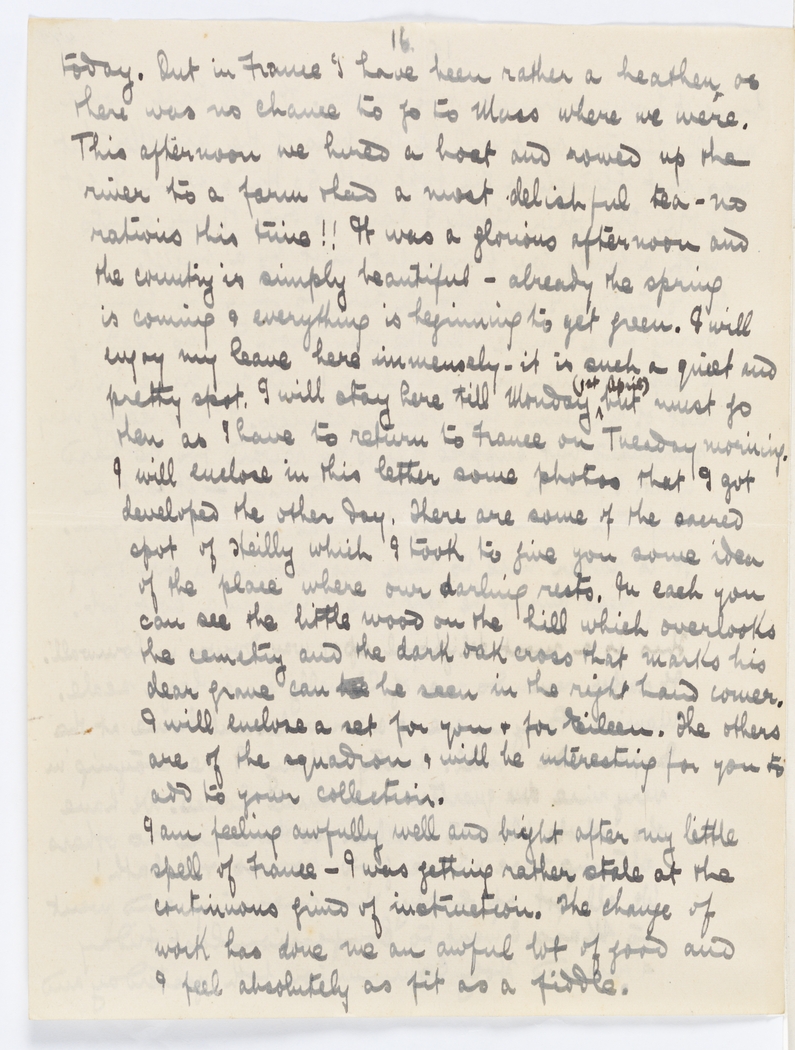 16.
today. But in France I have been rather a heathen, as
there was no chance to go to Mass where we were.
This afternoon we hired a boat and rowed up the
river to a farm & had a most delishful tea - no
rations this time!! It was a glorious afternoon and
the country is simply beautiful - already the spring
is coming & everything is beginning to get green. I will
enjoy my leave here immensely - it is such a quiet and
pretty spot. I will stay here till Monday (1st April) but must go
then as I have to return to France on Tuesday morning.
I will enclose in this letter some photos that I got
developed the other day. There are some of the sacred
spot of Heilly which I took to give you some idea
of the place where our darling rests. In each you
can see the little wood on the hill which overlooks
the cemetry and the dark oak cross that marks his
dear grave can be seen in the right hand corner.
I will enclose a set for you & for Eileen. The others
are of the squadron & will be interesting for you to
add to your collection.
I am feeling awfully well and bright after my little
spell of France - I was getting rather stale at the
continuous grind of instruction. The change of
work has done me an awful lot of good and
I feel absolutely as fit as a fiddle.